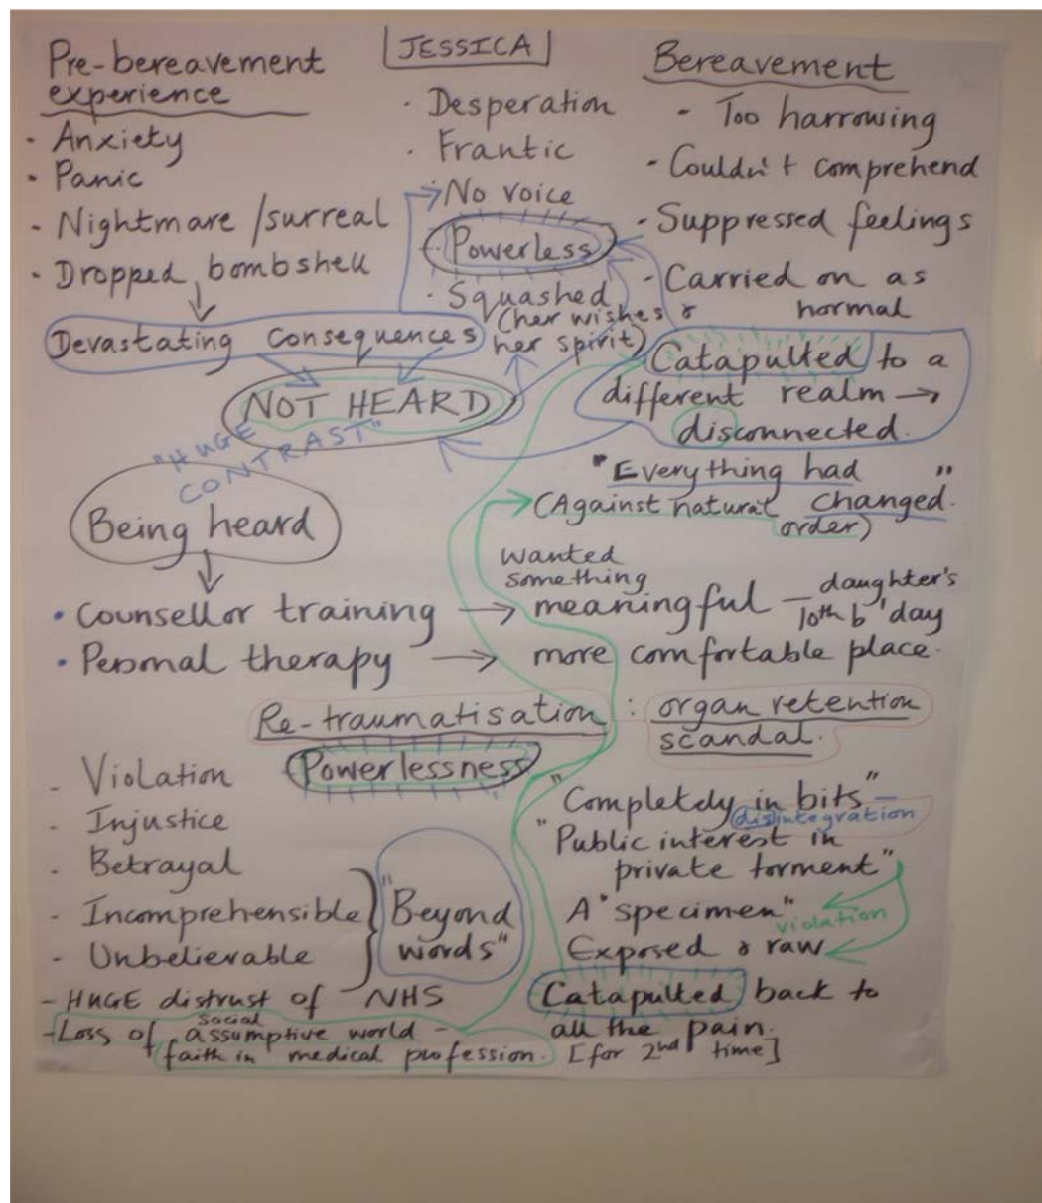 JESSICA
Pre-bereavement
experience
- Anxiety
- Panic
- Nightmare/surreal
- Dropped bombshell
Devastating Consequences
- Desperation
- Frantic
No voice
- Powerless
- Squashed
(her wishes &
her spirit)
NOT HEARD
"HUGE
CONTRAST"
Bereavement
- Too harrowing
- Couldn't comprehend
- Suppressed feelings
- Carried on as
normal
Catapulted to a
different realm →
disconnected.
"Everything had
changed."
(Against natural
order)
Being heard
• Counsellor training → wanted
something
meaningful — daughter's
10th b'day
• Personal therapy → more comfortable place.
Re-traumatisation : organ retention
scandal.
Powerlessness
- Violation
- Injustice
- Betrayal
- Incomprehensible
- Unbelievable
"Beyond
words"
- HUGE distrust of NHS
- Loss of social assumptive world -
faith in medical profession.
"Completely in bits" -
disintegration
"Public interest in
private torment"
A "specimen"
violation
Exposed & raw
Catapulted back to
all the pain.
[for 2nd time]